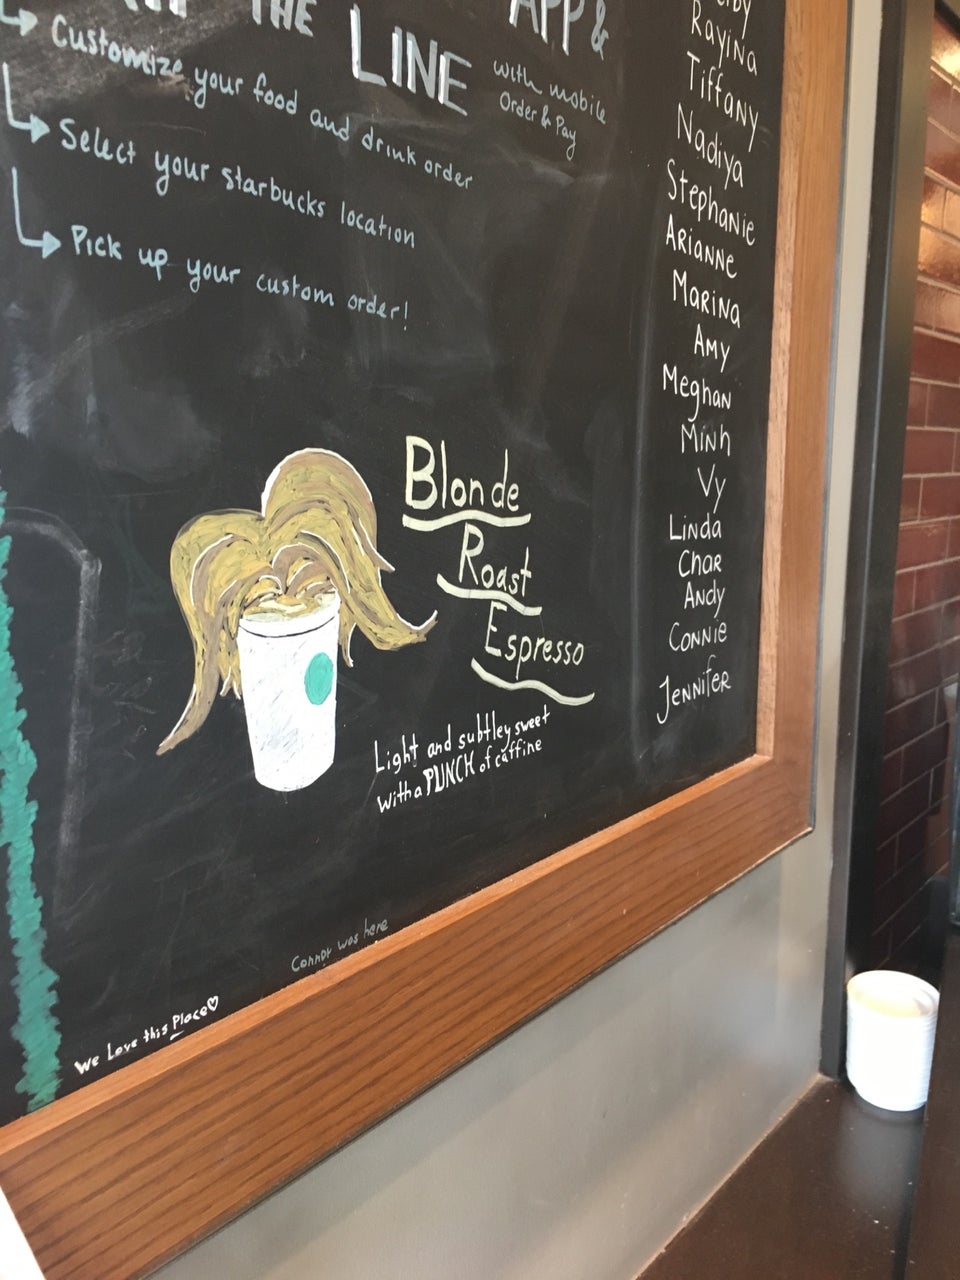 THE
LINE
APP &
with mobile
Order & Pay
Customize your food and drink order
Select your starbucks location
Pick up your custom order!
Rayina
Tiffany
Nadiya
Stephanie
Arianne
Marina
Amy
Meghan
Minh
Vy
Linda
Char
Andy
Connie
Jennifer
Blonde
Roast
Espresso
Light and subtley sweet
with a PUNCH of caffine
Connor was here
We Love this Place♡